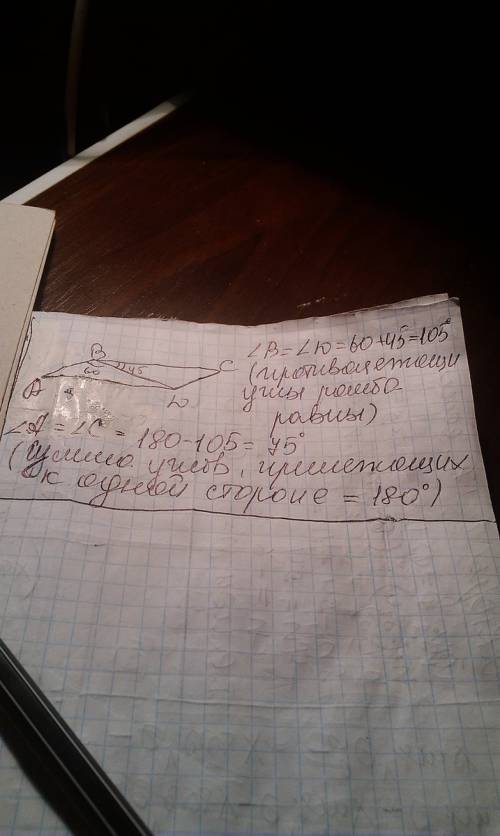 B
45
60
C
A
D
∠B=∠D=60+45=105°
(противолежащи
углы ромба
равны)
∠A=∠C= 180-105=75°
(сумма углов, прилежащих
к одной стороне = 180°)